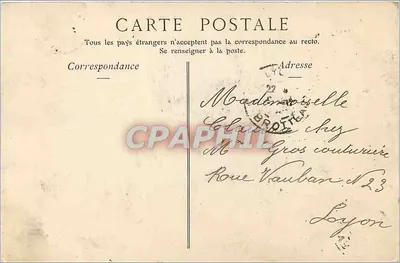 CARTE POSTALE
Tous les pays étrangers n'acceptent pas la correspondance au recto.
Se renseigner à la poste.
Correspondance
Adresse
BROTTEA
Mademoiselle
M Gros couturière
Roue Vauban N 23
Lyon
CPAPHIL